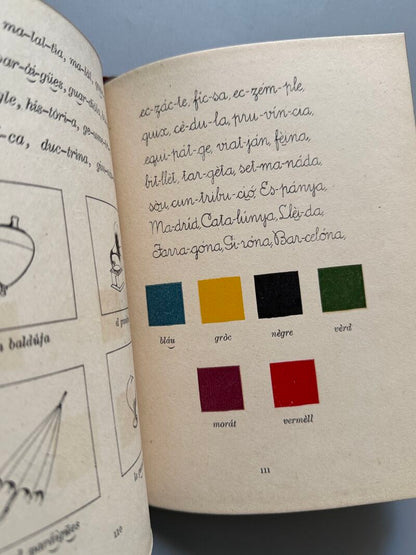 ma-lal-tia, ma-làl,
guar-dià
gle, his-tòri-a,
ca, duc-trina,
baldúfa
110
ec-zác-te, fíc-sa, ec-zém-ple,
guix, cè-du-la, pru-vín-cia,
equi-pát-ge, viat-ján, fèina,
bit-llét, tar-gèta, set-ma-náda,
sòu, cun-tribu-ció, Es-pánya,
Ma-dríd, Cata-lúnya, Llèi-da,
Tarra-góna, Gi-róna, Bar-celóna,
bláu gròc nègre vèrd
morát vermèll
111